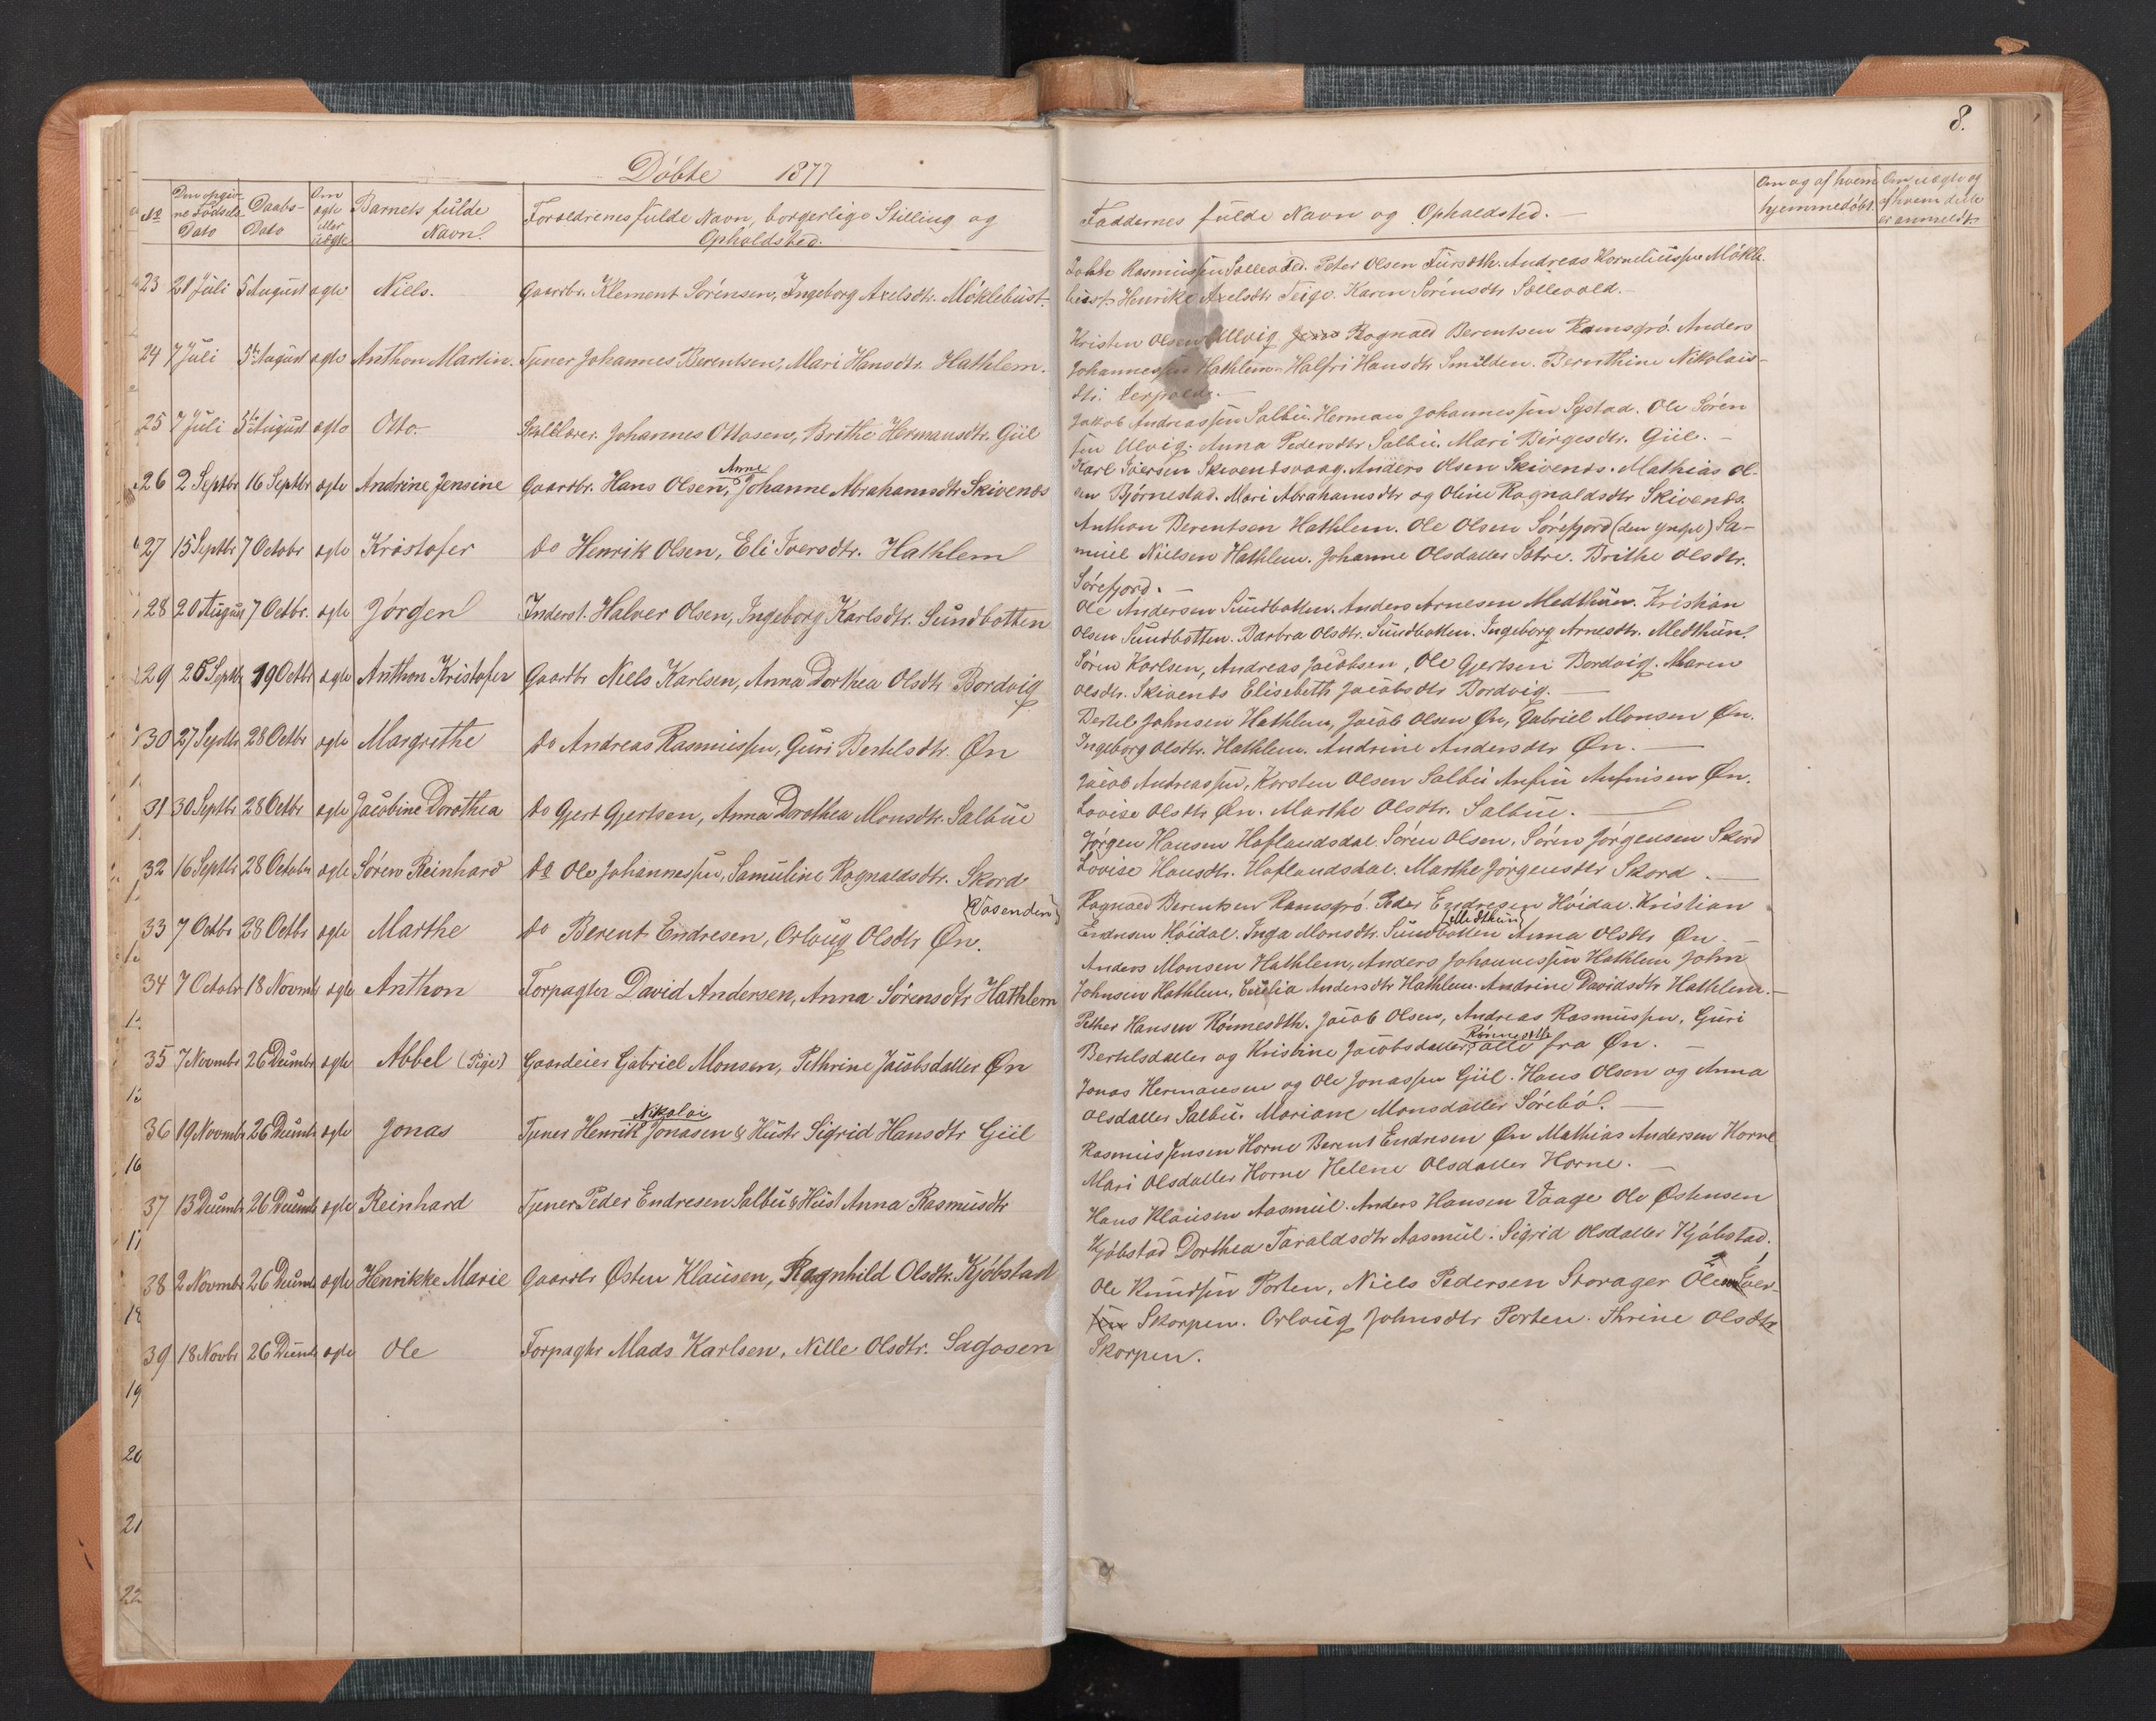 8.
Döbte 1877
No
Den opgiv-
ne Födsels
Dato
Daabs-
Dato
Om
ægte
eller
uægte
Barnets fulde
Navn.
Forældrenes fulde Navn, borgerlige Stilling og
Opholdsted.
Faddernes fulde Navn og Opholdsted. —
Om og af hvem
hjemmedöbt.
Om uægte og
af hvem dette
er anmeldt.
23 21 Juli 5 August ægte Niels. Gaardbr. Klement Sörensen, Ingeborg Axelsdtr. Möklebust.
Rasmussen Sollevold. Peter Olsen Andreas Korneliussen Mökle-
bust. Henrike Axelsdtr Teige. Karen Sörensdtr Sollevold. —
24 7 Juli 5te August ægte Anthon Martin. Tjener Johannes Berentsen, Mari Hansdtr. Hathlem.
Kristen Olsen Ullvig Rognald Berentsen Ramsgrö. Anders
Johannessen Hathlem. Halfri Hansdtr Smilden. Bernthine Nikolais-
dtr.
25 7 Juli 5te August ægte Otto. Johannes Ottosen, Brithe Hermansdtr. Giil
Jakob Andreassen Salbu. Herman Johannessen Systad. Ole Sören
sen Ulvig. Anna Pedersdtr Salbu. Mari Birgesdtr. Giil. —
26 2 Septbr 16 Septbr ægte Andrine Jensine Gaardbr. Hans Olsen, Anne Johanne Abrahamsdtr Skivenes
Karl Iversen Skivenesvaag. Anders Olsen Skivenes. Mathias Ol-
sen Björnestad. Mari Abrahamsdtr og Oline Rognaldsdtr Skivenes.
27 15 Septbr 7 Octobr ægte Kristofer Do Henrik Olsen, Eli Iversdtr. Hathlem
Anthon Berentsen Hathlem. Ole Olsen Sörefjord (den yngre) Sa-
muel Nielsen Hathlem. Johanne Olsdatter Sætre. Brithe Olsdtr.
Sörefjord. —
28 20 August 7 Octbr. ægte Jörgen Inderst. Halver Olsen, Ingeborg Karlsdtr. Sundbotten
Ole Andersen Sundbotten. Anders Arnesen Medthun. Kristian
Olsen Sundbotten. Barbra Olsdtr. Sundbotten. Ingeborg Arnesdtr. Medthun.
29 Septbr 19 Octbr ægte Anthon Kristofer Gaardbr Niels Karlsen, Anna Dorthea Olsdtr Bordvig
Sören Karlsen, Andreas Jacobsen, Ole Gjertsen Bordvig. Maren
Olsdtr. Skivenes Elisebeth Jacobsdtr Bordvig. —
30 27 Septbr 28 Octbr ægte Margrethe Do Andreas Rasmussen, Guri Bertelsdtr. Øn
Bertel Johnsen Hathlem, Jacob Olsen Øn, Gabriel Monsen Øn.
Ingeborg Olsdtr. Hathlem. Andrine Andersdtr Øn. —
31 30 Septbr 28 Octbr ægte Jacobine Dorothea Do Gjert Gjertsen, Anna Dorothea Monsdtr. Salbue
Jacob Andreassen, Karsten Olsen Salbu Anfin Anfinsen Øn.
Lovise Olsdtr Øn. Marthe Olsdtr. Salbue. —
32 16 Septbr 28 October ægte Sören Reinhard Do Ole Johannessen, Samuline Rognaldsdtr. Skord
Jörgen Hansen Haflandsdal. Sören Olsen, Sören Jörgensen Skord
Lovise Hansdtr. Haflandsdal. Marthe Jörgensdtr Skord. —
33 7 Octbr 28 Octbr ægte Marthe Do Berent Endresen, Orloug Olsdtr Øn. (Vasenden)
Rognald Berentsen Ramsgrö. Peder Endresen Höidal. Kristian
Endresen Höidal. Inga Monsdtr. Sundbotten (Medthun) Anna Olsdtr Øn. —
34 7 Octobr 18 Novembr ægte Anthon Forpagter David Andersen, Anna Sörensdtr Hathlem
Anders Monsen Hathlem, Anders Johannessen Hathlem John
Johnsen Hathlem. Andersdtr Hathlem. Andrine Davidsdtr Hathlem. —
35 7 Novembr 26 Decembr ægte Abbel (Pige) Gaardeier Gabriel Monsen, Pethrine Jacobsdatter Øn
Pether Hansen Rönnesdth. Jacob Olsen, Andreas Rasmussen, Guri
Bertelsdatter og Kristine Jacobsdatter, Rönnesdth alle fra Øn. —
36 19 Novembr 26 Decembr ægte Jonas Tjener Henrik Nikolai Jonasen & Hustr Sigrid Hansdtr Giil
Jonas Hermansen og Ole Jonassen Giil. Hans Olsen og Anna
Olsdatter Salbu. Mariane Monsdatter Söreböl. —
37 13 Decembr 26 Decembr ægte Reinhard Tjener Peder Endresen Salbu & Hust Anna Rasmusdtr
Rasmus Jensen Horne Berent Endresen Øn Mathias Andersen Horne
Mari Olsdatter Horne Helene Olsdatter Horne. —
38 2 Novembr 26 Decembr ægte Henrikke Marie Gaardbr Østen Klausen, Ragnhild Olsdtr. Kjöbstad
Hans Klausen Aasmul. Anders Hansen Vaage Ole Østensen
Kjöbstad Dorthea Taraldsdtr Aasmul. Sigrid Olsdatter Kjöbstad.
39 18 Novbr 26 Decembr ægte Ole Forpagtr Mads Karlsen, Nille Olsdtr. Sagosen
Ole Knudsen Porten, Niels Pedersen Storager
Skorpen. Orloug Johnsdtr Porten. Thrine Olsdtr
Skorpen.
16
17
18
19
20
21
22